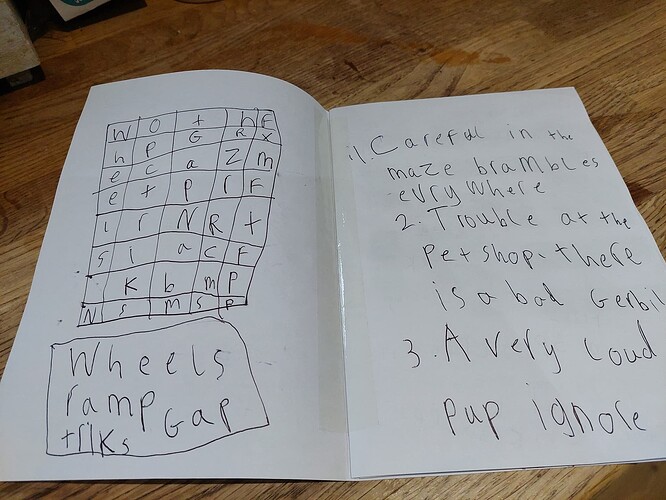 W O t h F
h P G R X
e C a Z m
e t P r F
l r N R t
s i a C F
K b m P
N s m s P
Wheels
ramp GaP
triks
1. Careful in the
maze brambles
evrywhere
2. Trouble at the
Petshop. there
is a bad Gerbil
3. A very loud
pup ignore